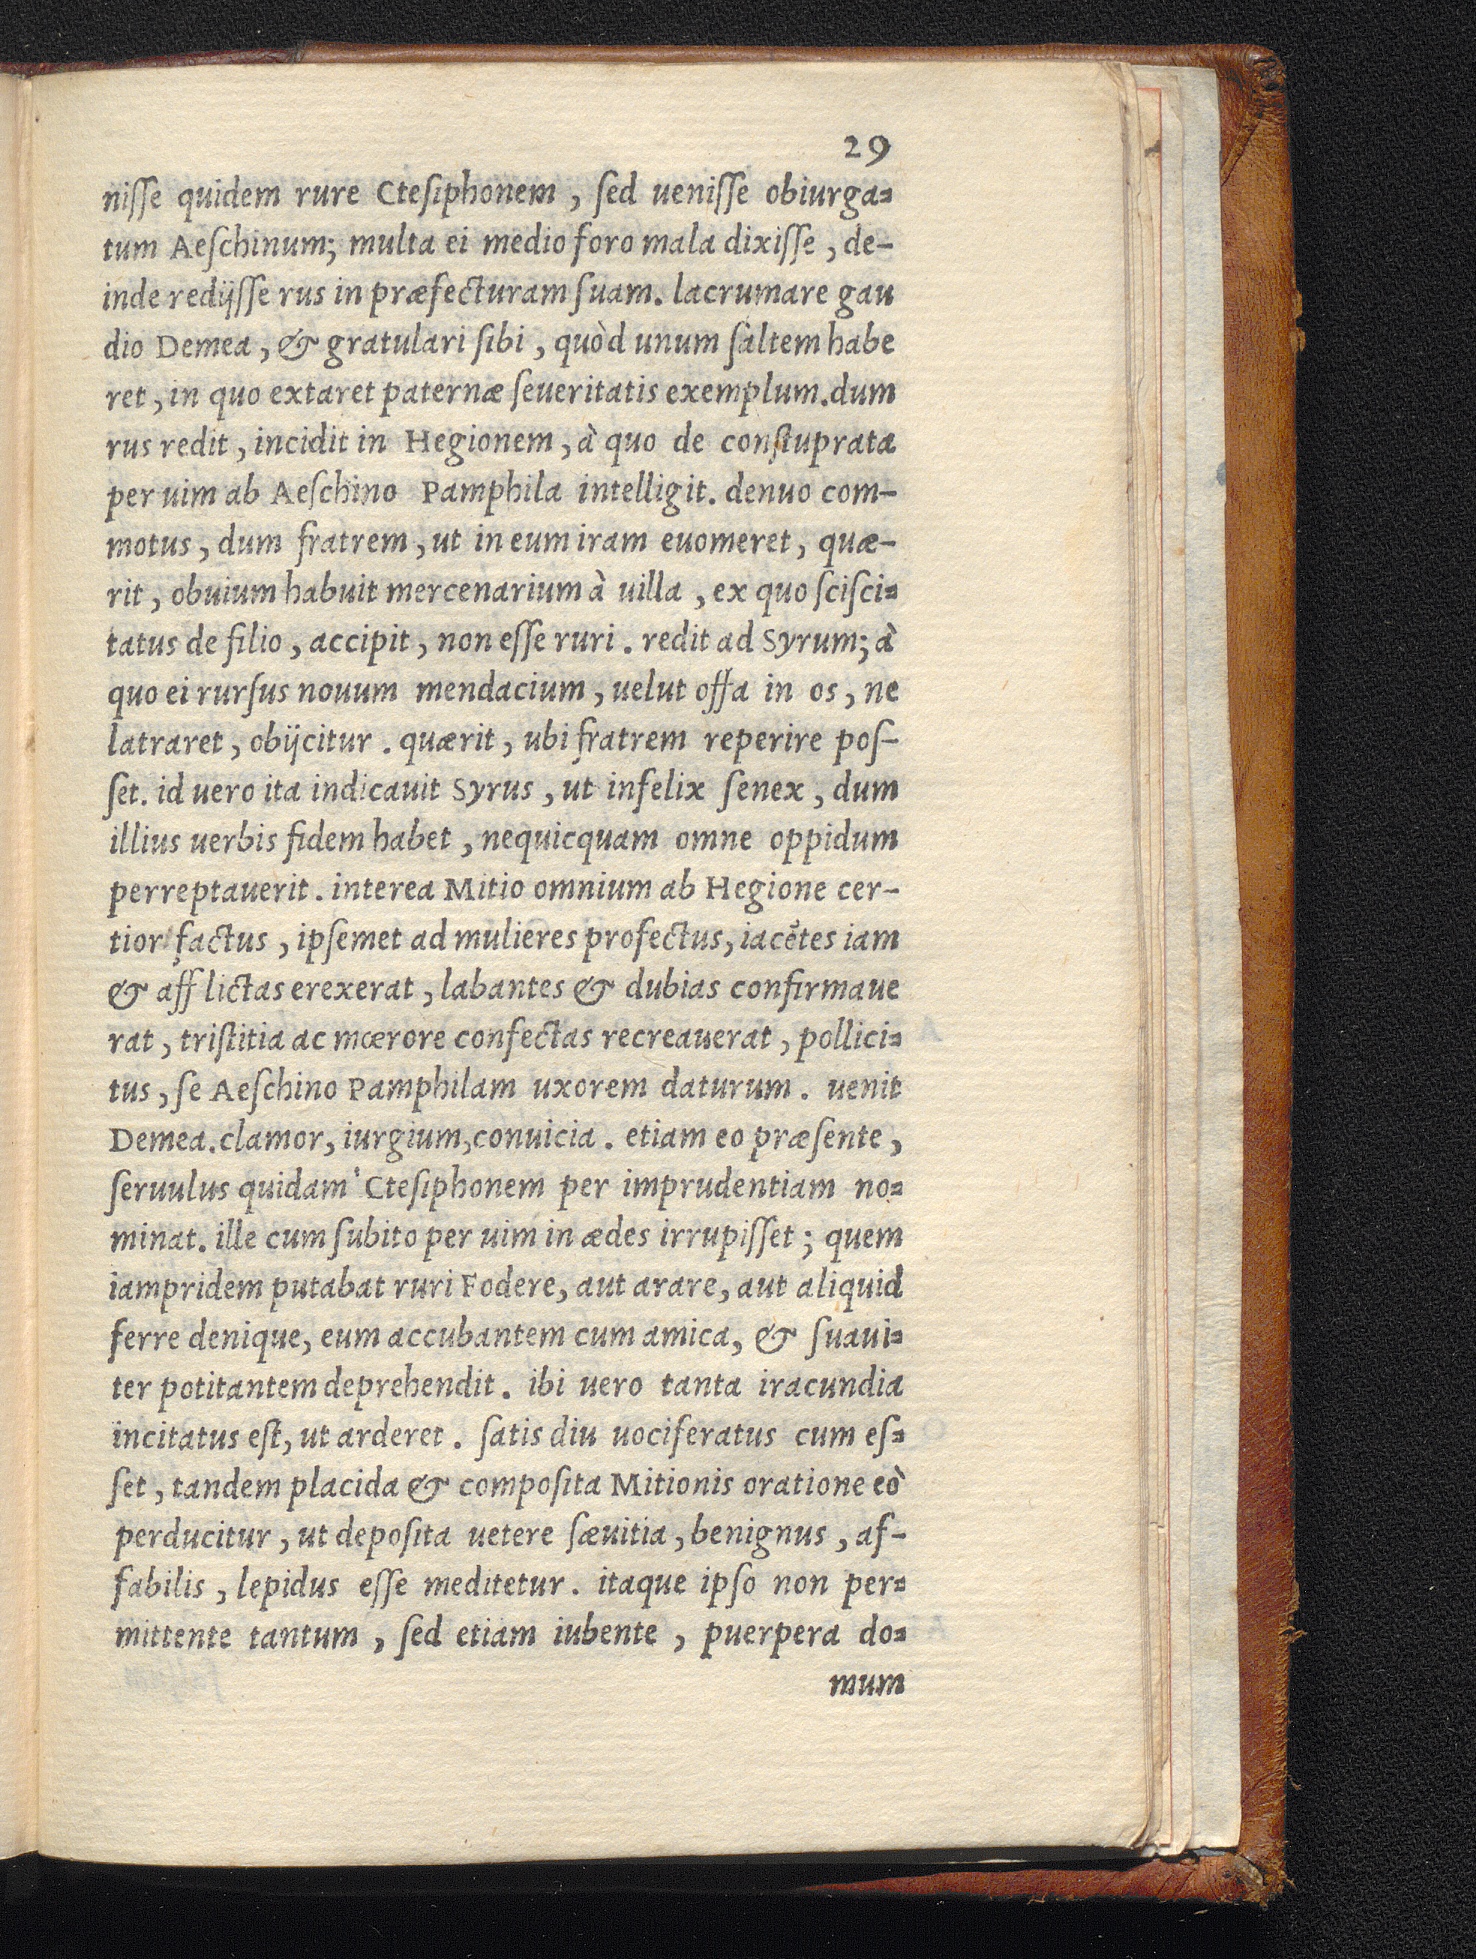 29
nisse quidem rure Ctesiphonem, sed uenisse obiurga-
tum Aeschinum; multa ei medio foro mala dixisse, de-
inde redijsse rus in præfecturam suam. lacrumare gau
dio Demea, & gratulari sibi, quòd unum saltem habe
ret, in quo extaret paternæ seueritatis exemplum. dum
rus redit, incidit in Hegionem, à quo de constuprata
per uim ab Aeschino Pamphila intelligit. denuo com-
motus, dum fratrem, ut in eum iram euomeret, quæ-
rit, obuium habuit mercenarium à uilla, ex quo scisci-
tatus de filio, accipit, non esse ruri. redit ad Syrum; à
quo ei rursus nouum mendacium, uelut offa in os, ne
latraret, obijcitur. quærit, ubi fratrem reperire pos-
set. id uero ita indicauit Syrus, ut infelix senex, dum
illius uerbis fidem habet, nequicquam omne oppidum
perreptauerit. interea Mitio omnium ab Hegione cer-
tior factus, ipsemet ad mulieres profectus, iacẽtes iam
& afflictas erexerat, labantes & dubias confirmaue
rat, tristitia ac mœrore confectas recreauerat, pollici-
tus, se Aeschino Pamphilam uxorem daturum. uenit
Demea. clamor, iurgium, conuicia. etiam eo præsente,
seruulus quidam Ctesiphonem per imprudentiam no-
minat. ille cum subito per uim in ædes irrupisset; quem
iampridem putabat ruri Fodere, aut arare, aut aliquid
ferre denique, eum accubantem cum amica, & suaui-
ter potitantem deprehendit. ibi uero tanta iracundia
incitatus est, ut arderet. satis diu uociferatus cum es-
set, tandem placida & composita Mitionis oratione eò
perducitur, ut deposita uetere sæuitia, benignus, af-
fabilis, lepidus esse meditetur. itaque ipso non per-
mittente tantum, sed etiam iubente, puerpera do-
mum